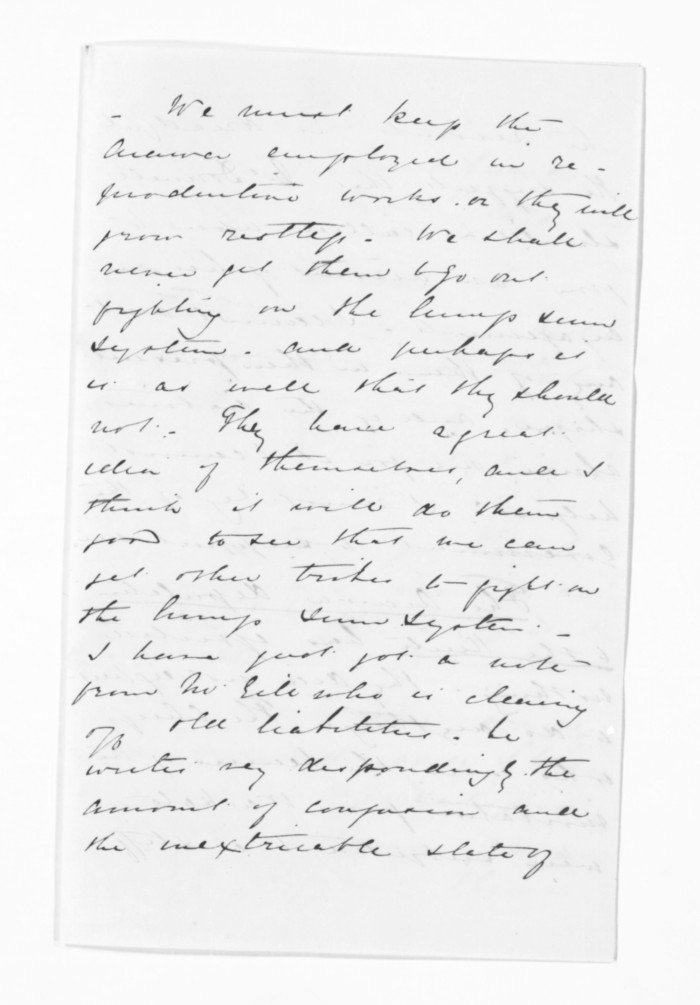 - We must keep the
Arawa employed in re-
productive works. or they will
grow restless. We shall
never get them to go out
fighting on the lump sum
system. and perhaps it
is as well that they should
not. They have a great
idea of themselves, and I
think it will do them
good to see that we can
get other tribes to fight on
the lump sum system. -
I have just got a note
from Mr Gill who is clearing
off old liabilities. he
writes very despondingly. the
amount of confusion and
the inextricable state of